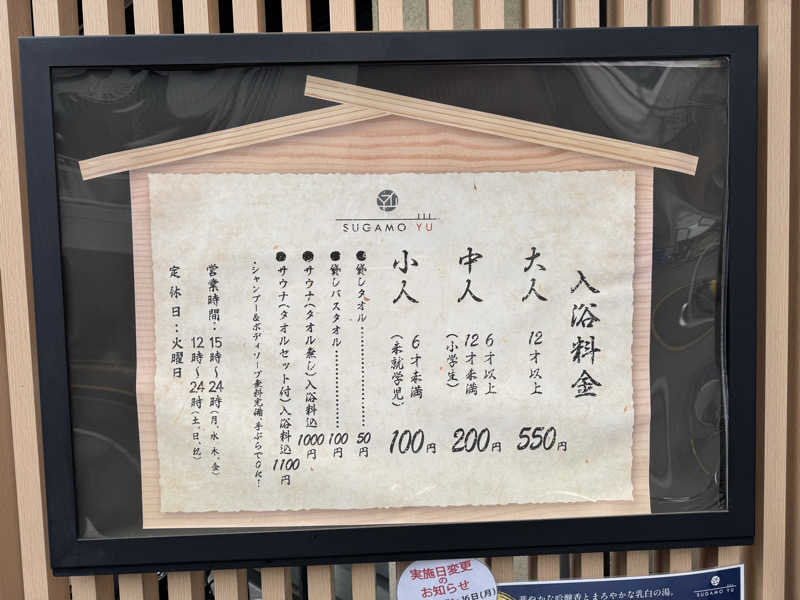 SUGAMO YU
入浴料金
大人 12才以上 550円
中人 6才以上
12才未満
(小学生) 200円
小人 6才未満
(未就学児) 100円
貸しタオル 50円
貸しバスタオル 100円
サウナ(タオル無し)入浴料込 1000円
サウナ(タオルセット付)入浴料込 1100円
・シャンプー&ボディソープ無料完備、手ぶらでOK!
営業時間:15時~24時(月、水、木、金)
12時~24時(土、日、祝)
定休日:火曜日
実施日変更
の
お知らせ
16日(月)
華やかな吟醸香とまろやかな乳白の湯。
SUGAMO YU